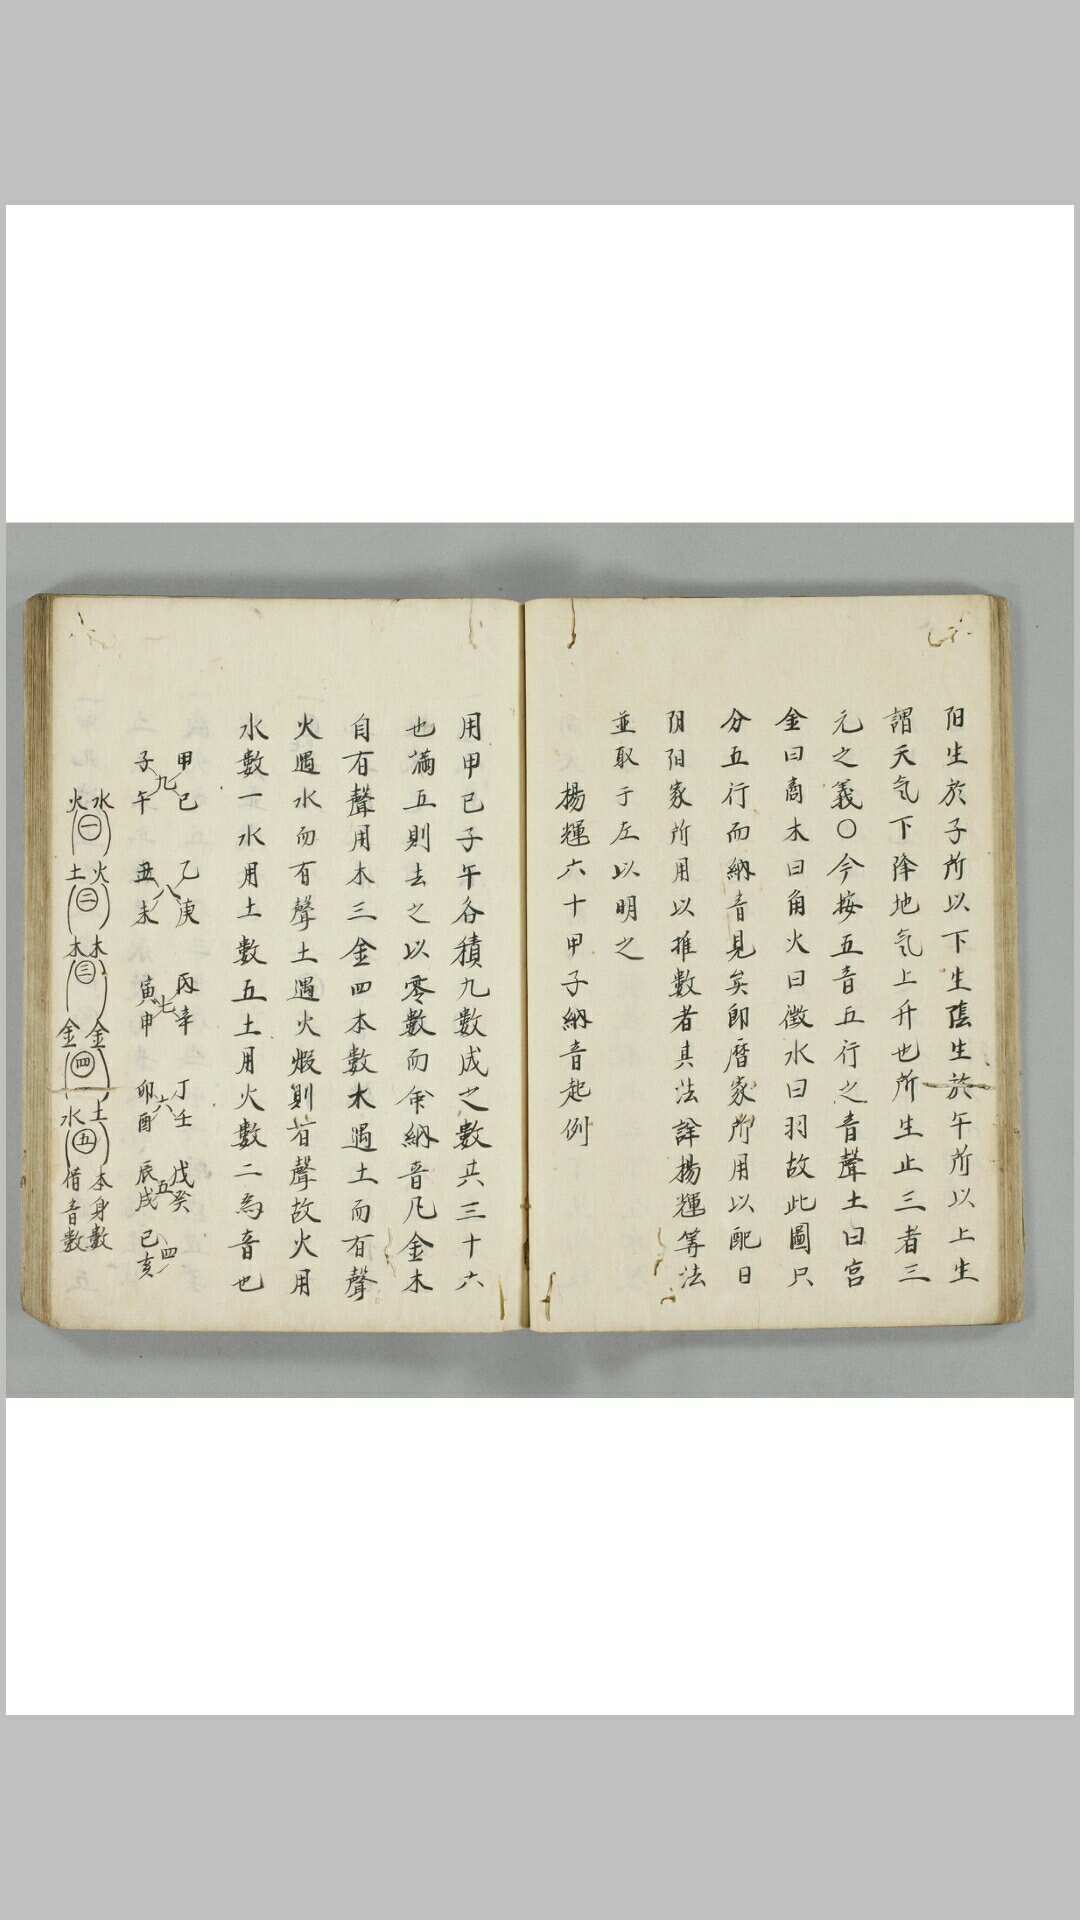 阳生於子所以下生蔭生於午所以上生
謂天氣下降地氣上升也所生止三者三
元之義〇今按五音五行之音聲土曰宮
金曰商木曰角火曰徴水曰羽故此圖只
分五行而納音見矣即暦家所用以配日
阴阳家所用以推数者其法詳楊輝筭法
並取于左以明之
楊輝六十甲子納音起例
用甲己子午各積九數成之數共三十六
也滿五則去之以零數而命納音凡金木
自有聲用木三金四本數木遇土而有聲
火遇水而有聲土遇火煆則有聲故火用
水數一水用土數五土用火數二為音也
甲己 乙庚 丙辛 丁壬 戊癸
九 八 七 六 五 四
子午 丑未 寅申 卯酉 辰戌 己亥
水 火 木 金 土 本身數
一 二 三 四 五
火 土 木 金 水 借音數